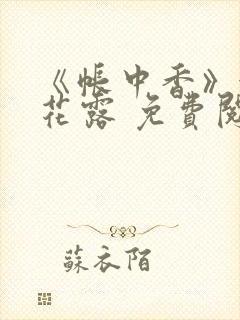 《帳中香》
花露 免費閱
蘇衣陌